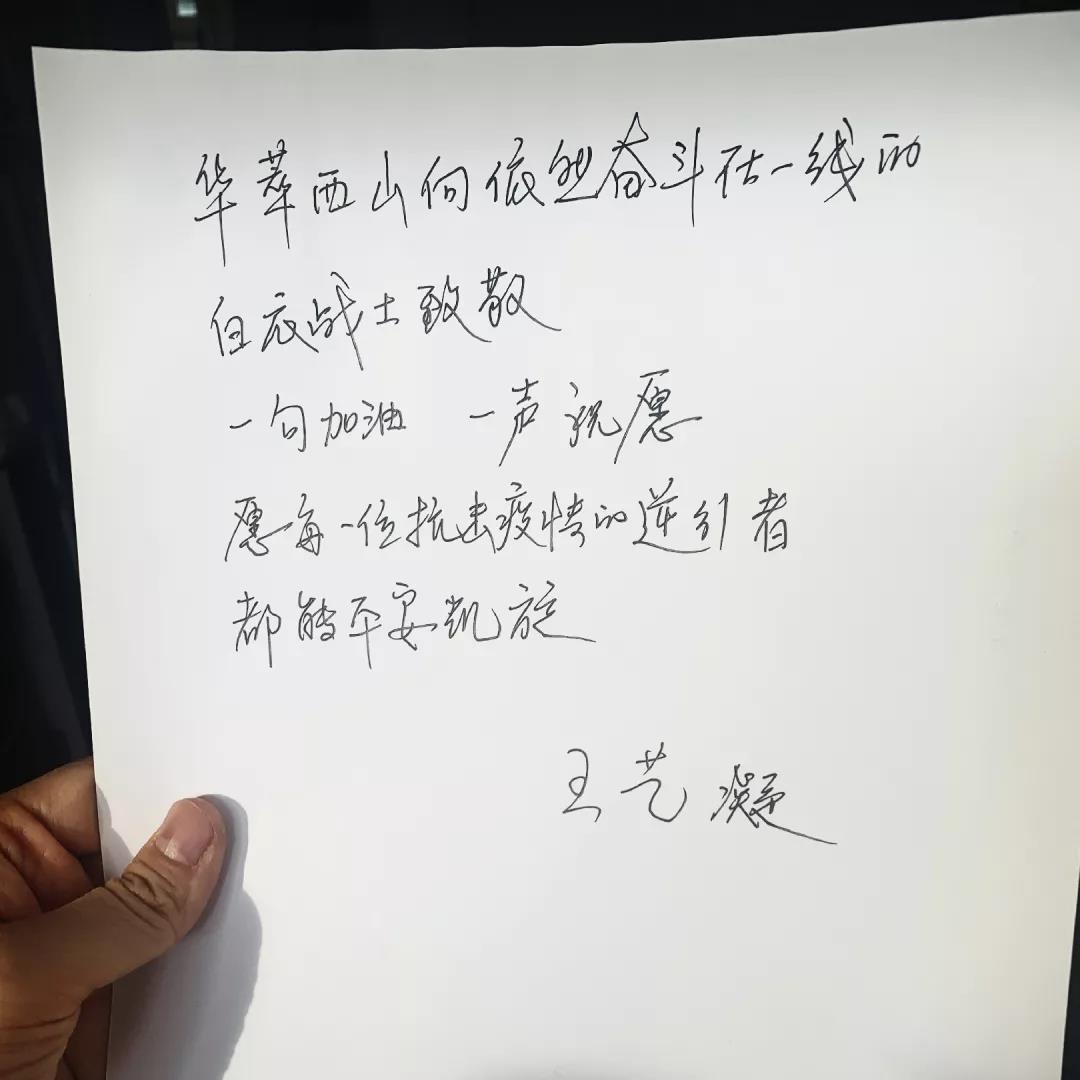 华萃西山向依然奋斗在一线的
白衣战士致敬
一句加油 一声祝愿
愿每一位抗击疫情的逆行者
都能平安凯旋
王艺凝